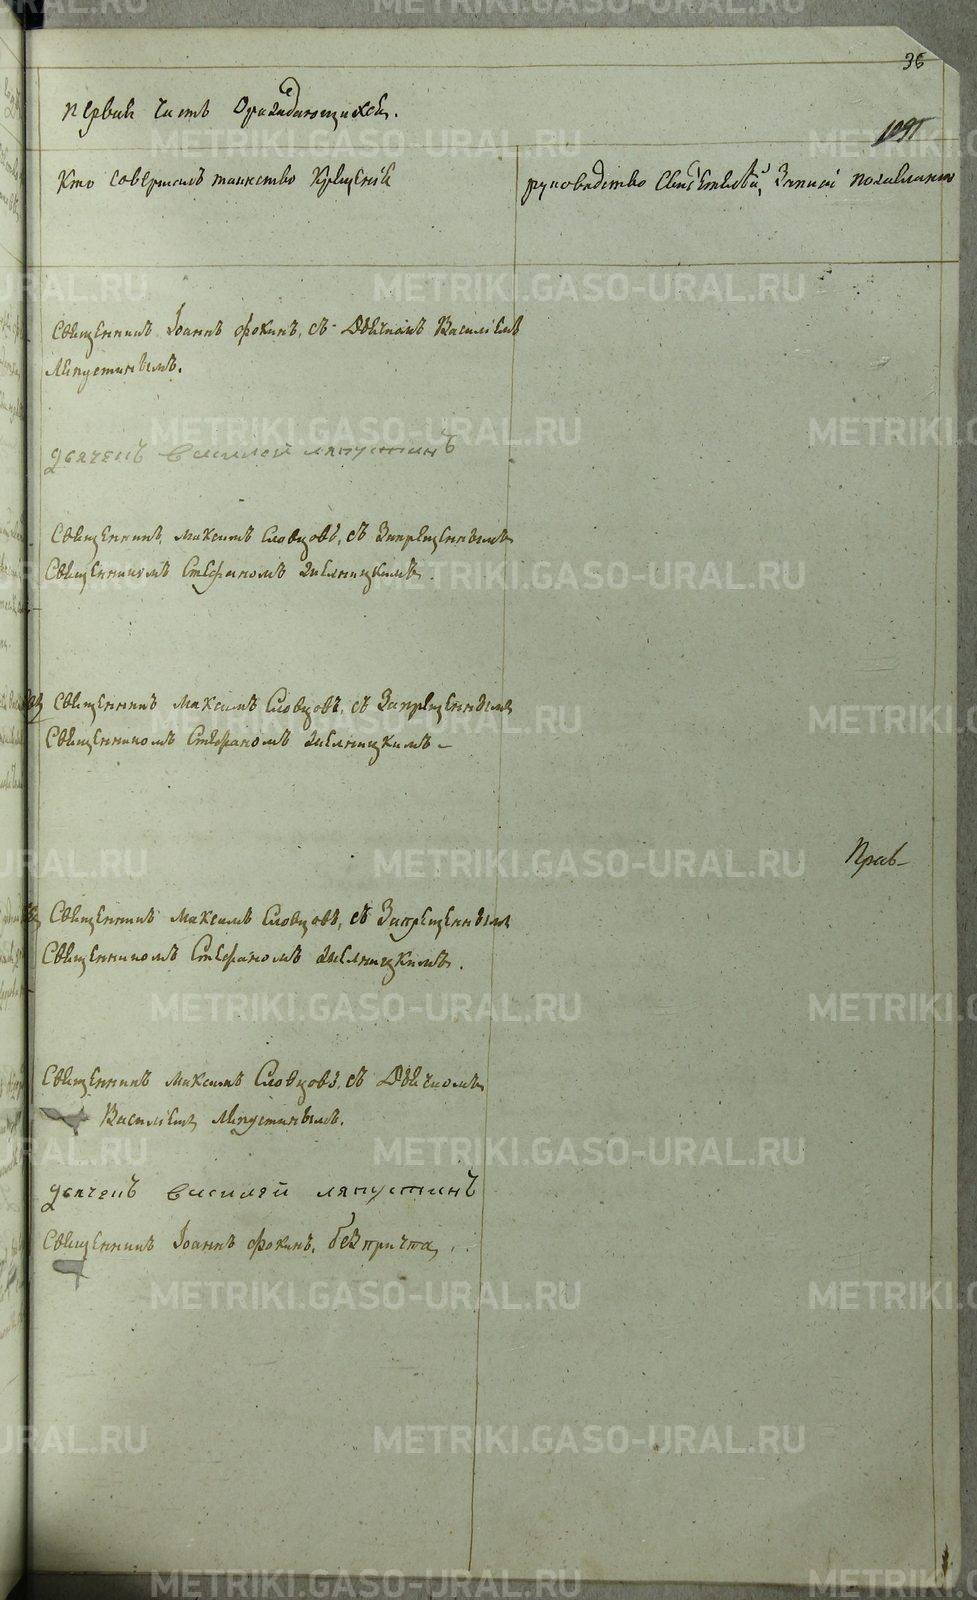 36
первая часть Ораждающихся.
1091
Кто совершалъ таинство Крещенїя
руководство Свидѣтелей Записи пожеланїю
Священникъ Iоаннъ Фокинъ, съ Дьячкомъ Василїемъ
Ляпустинымъ.
дьячекъ василей ляпустинъ
Священникъ, Максимъ Словцовъ, съ Запрещеннымъ
Священникомъ Стефаномъ
Священникъ Максимъ Словцовъ, съ Запрещеннымъ
Священникомъ Стефаномъ
Прав-
Священникъ Максимъ Словцовъ, съ Запрещеннымъ
Священникомъ Стефаномъ
Священникъ Максимъ Словцовъ, съ Дьячкомъ
Василїемъ Ляпустинымъ.
дьячекъ василей ляпустинъ
Священникъ Iоаннъ Фокинъ. без причта